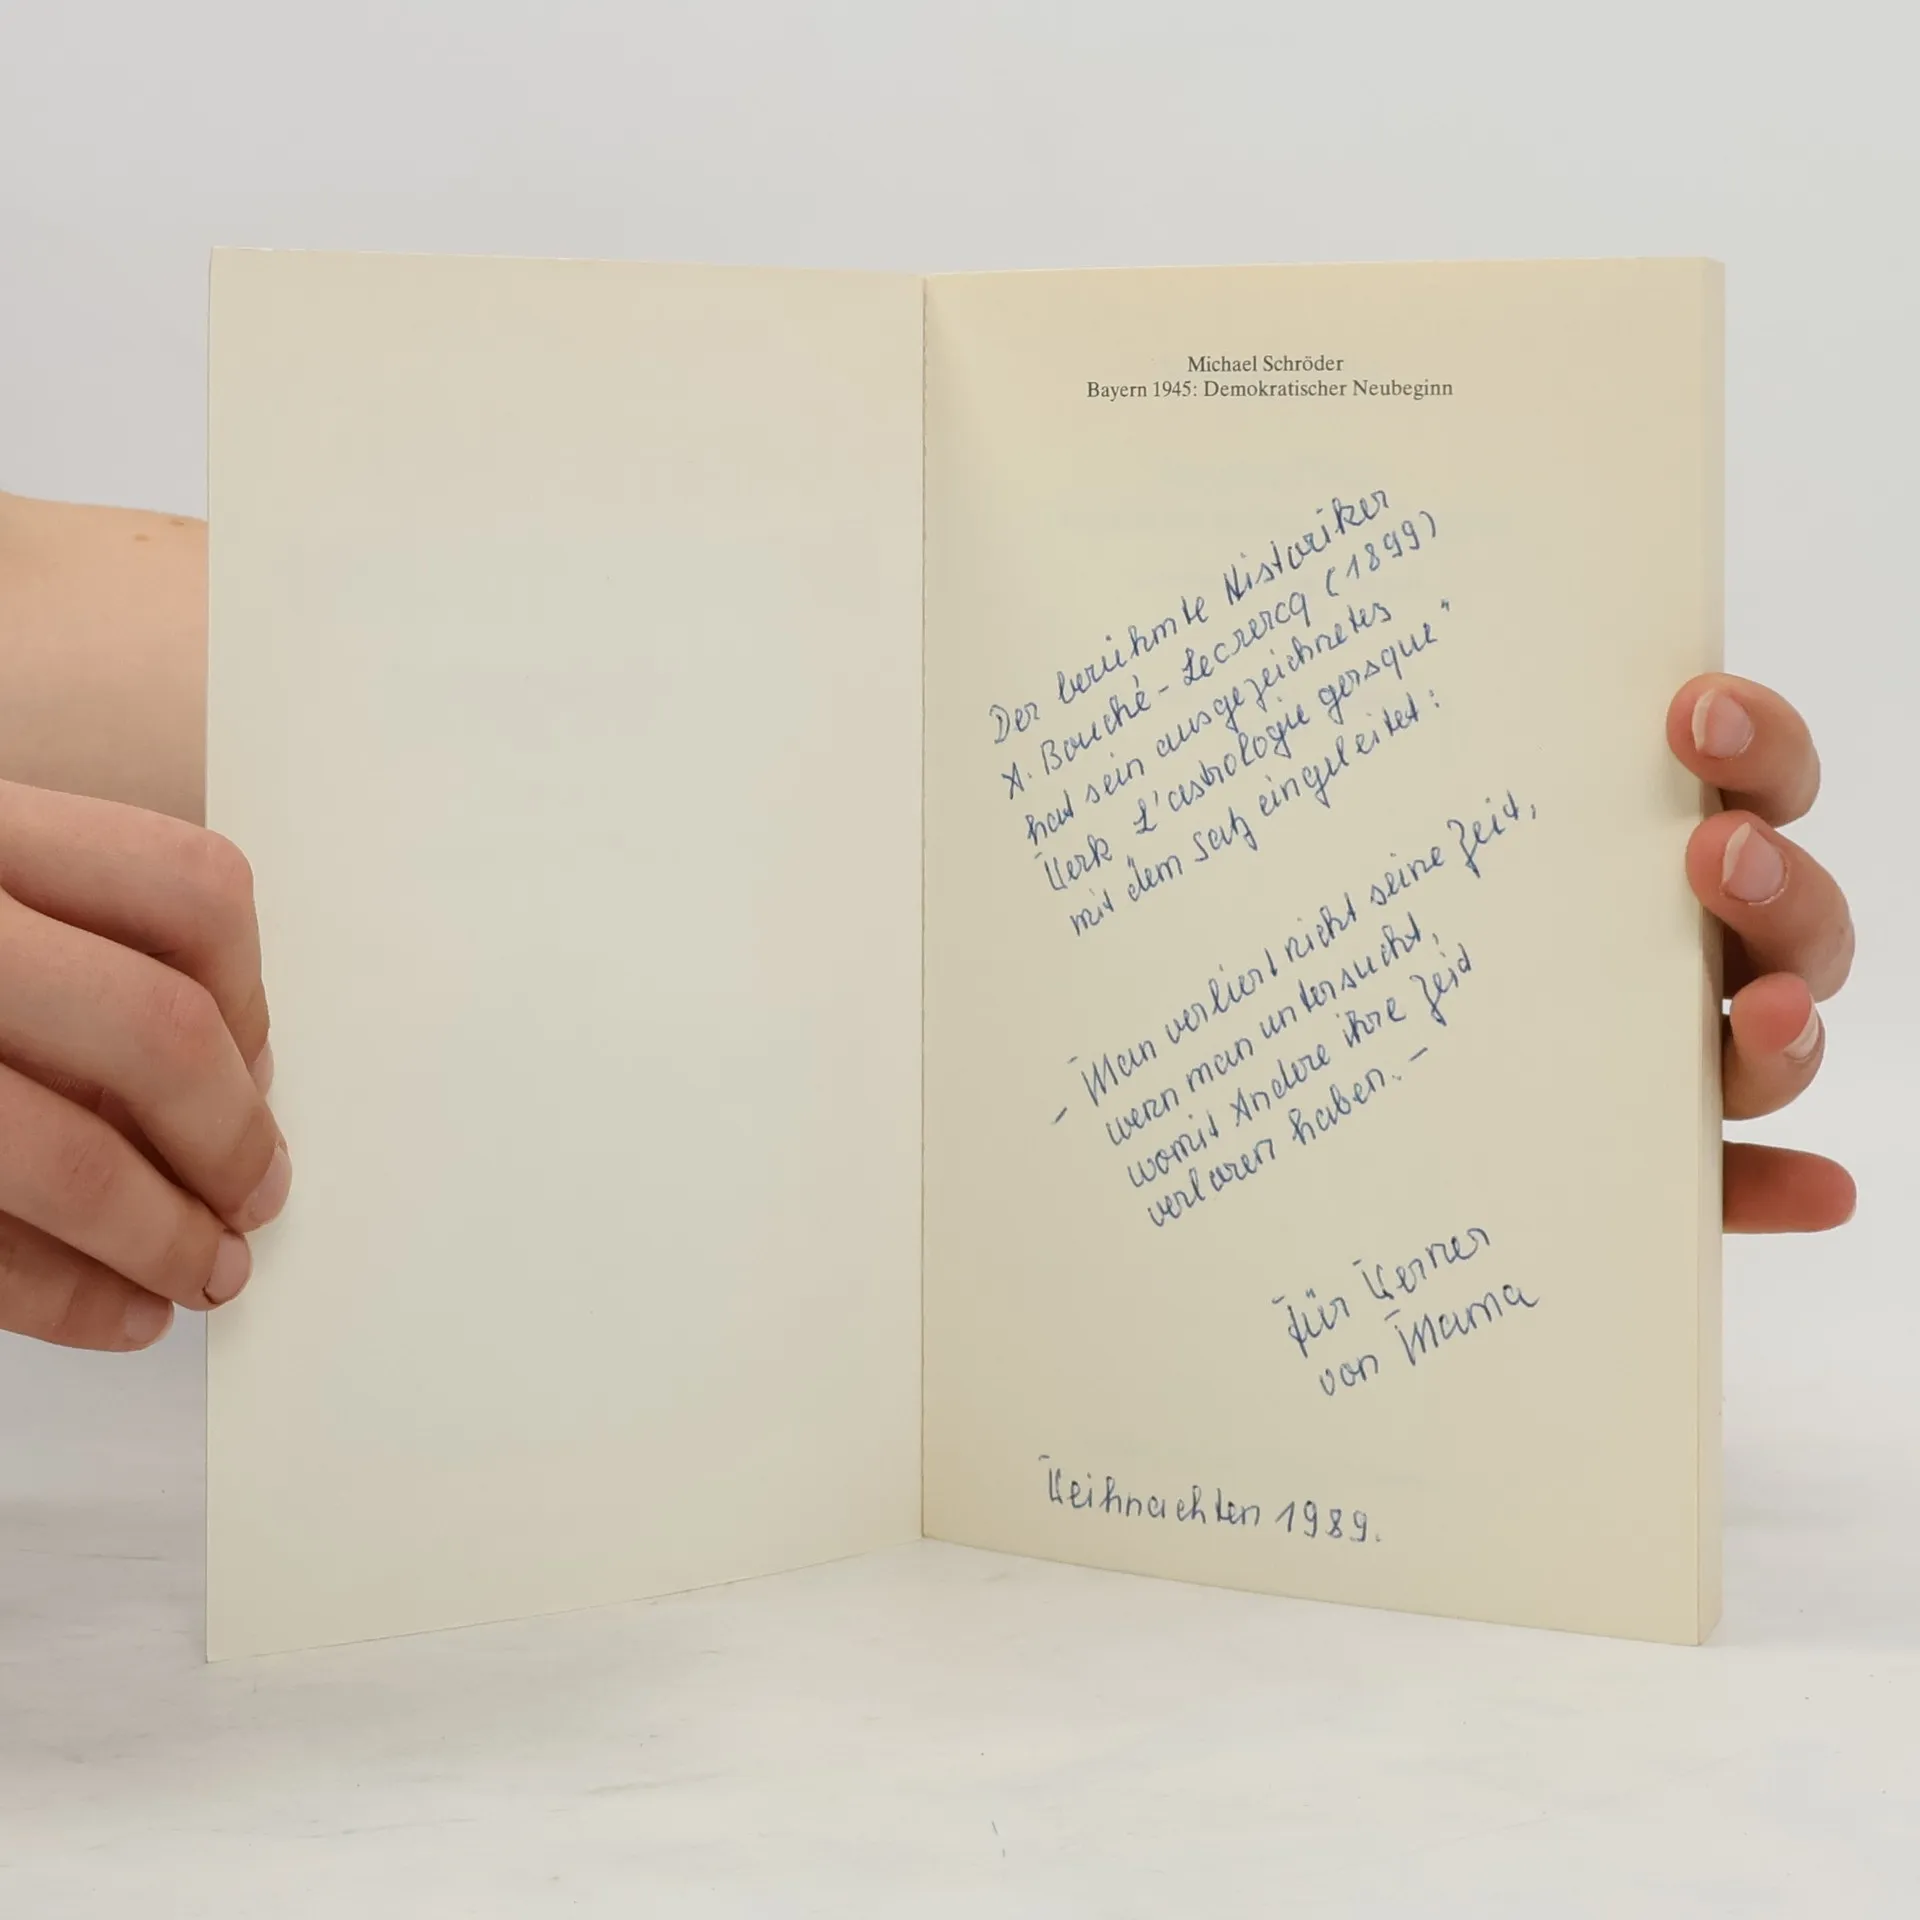 Michael Schröder
Bayern 1945: Demokratischer Neubeginn
Der berühmte Historiker
A. Bouché-Lecrercq (1899)
hat sein ausgezeichnetes
Werk L'astrologie gersque"
mit dem Satz eingeleitet:
- Man verliert nicht seine Zeit,
wenn man untersucht,
womit Andere ihre Zeit
verloren haben. -
Für Werner
von Mama
Weihnachten 1989.